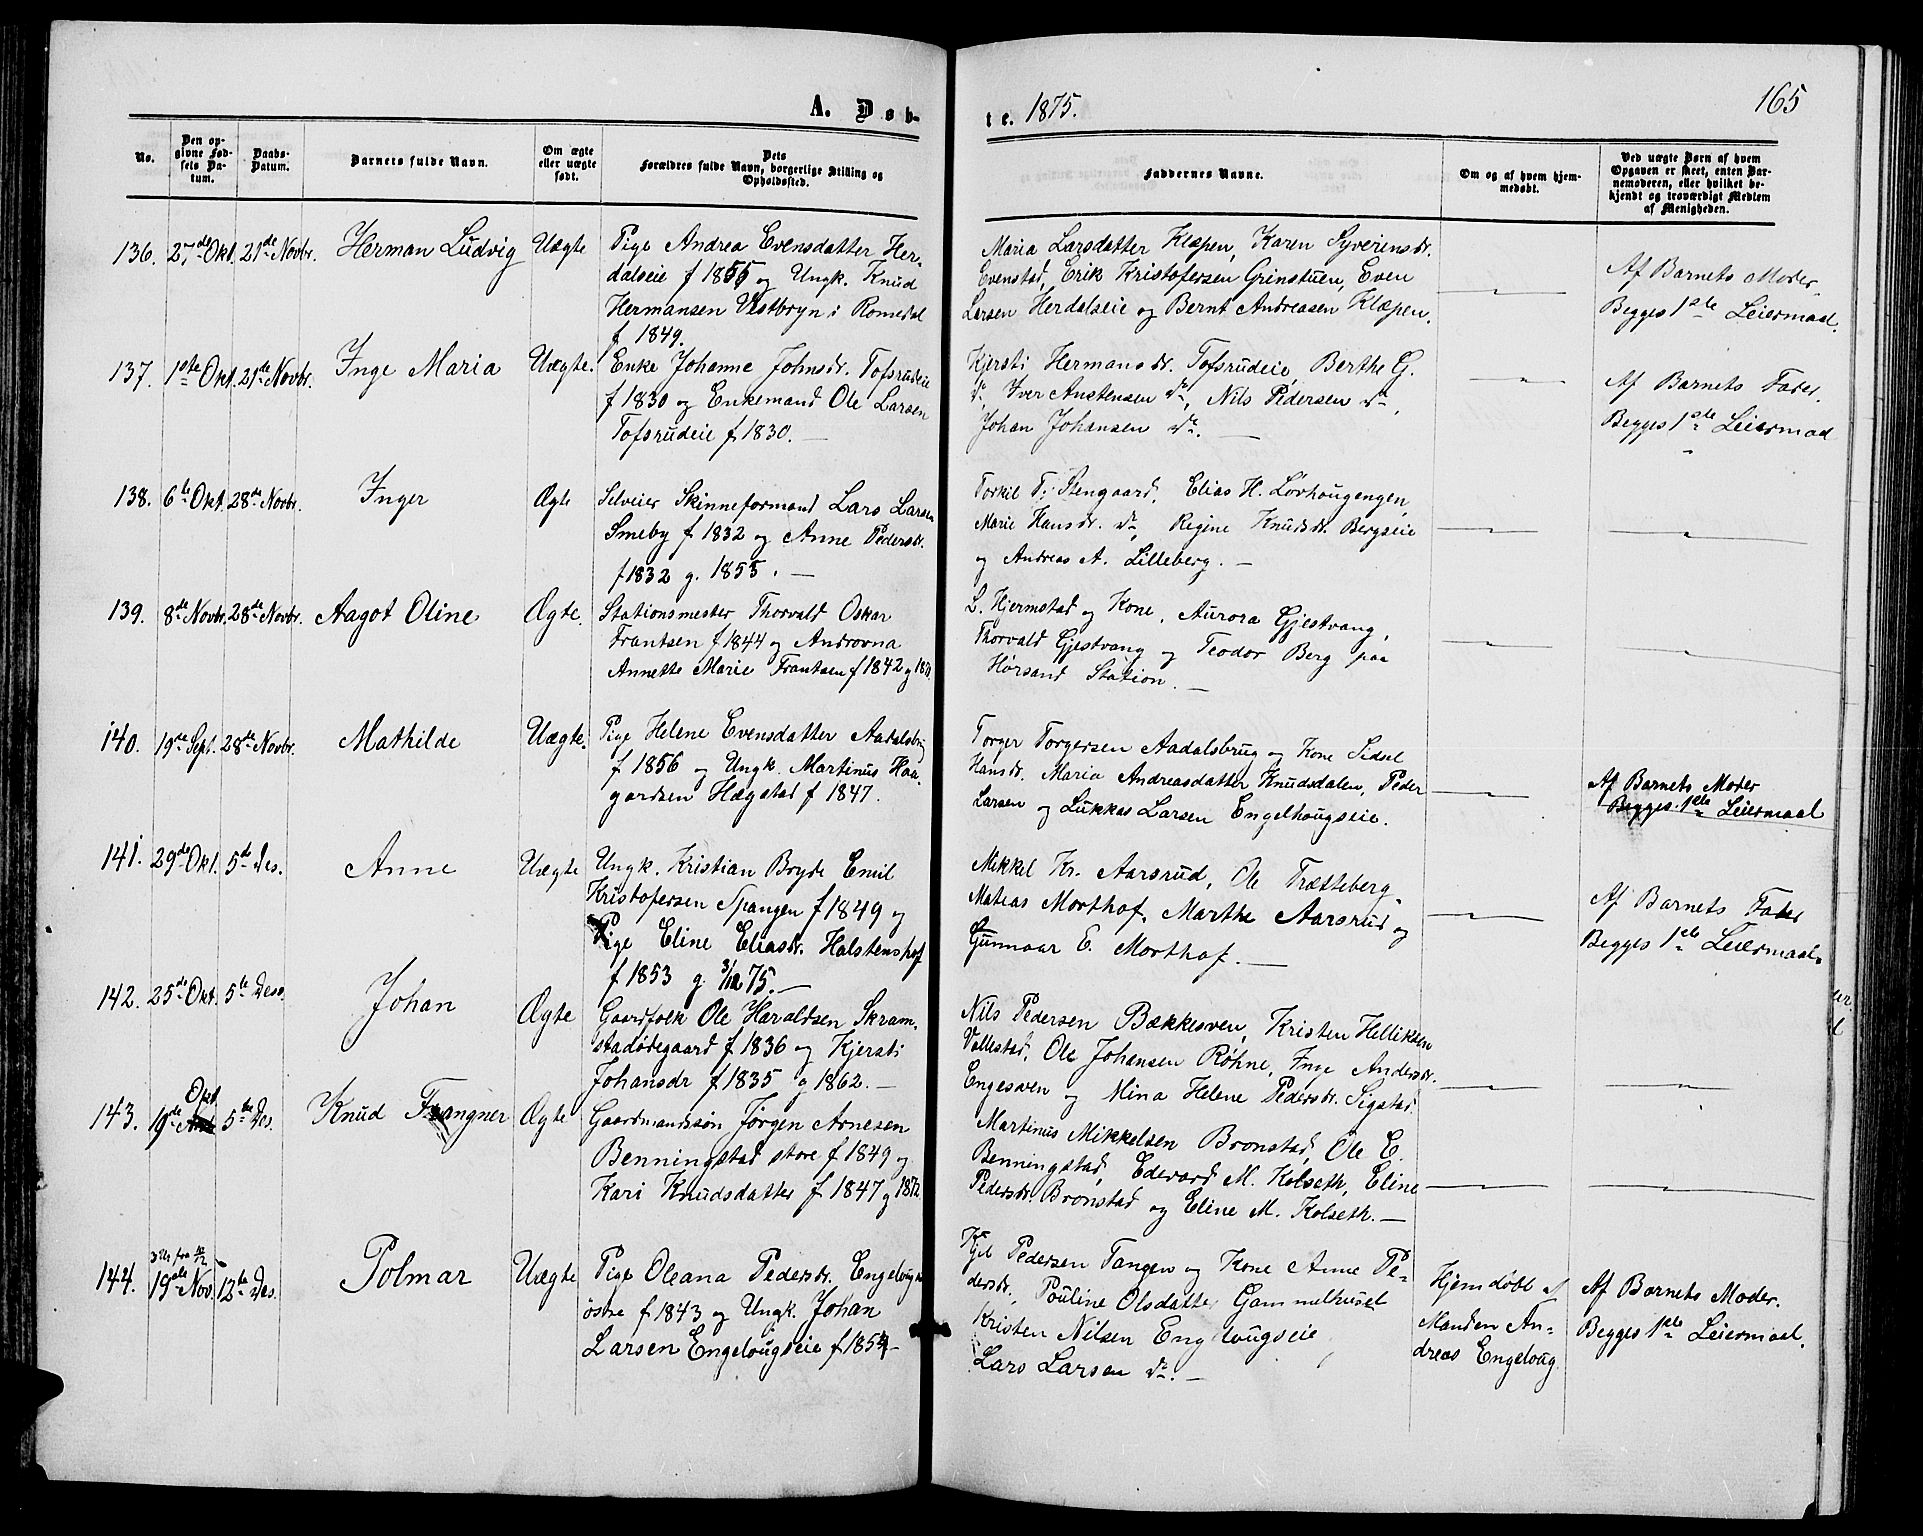 A. Døb-
te. 1875.
165
No.
Den op-
givne Fød-
sels Da-
tum.
Daabs-
Datum.
Barnets fulde Navn.
Om ægte
eller uægte
født.
Dets
Forældres fulde Navn, borgerlige Stilling og
Opholdssted.
Faddernes Navne.
Om og af hvem hjem-
medøbt.
Ved uægte Børn af hvem
Opgaven er skeet, enten Bar-
nemoderen, eller hvilket be-
kjendt og troværdigt Medlem
af Menigheden.
136. 27de Okt. 21de Novbr. Herman Ludvig Uægte
Pige Andrea Evensdatter Her-
dalseie f 1855 og Ungk. Knud
Hermansen Vestbryn i Romedal
f 1849.
Maria Larsdatter Klæpen, Karen Syverinsdr.
Evenstad, Erik Kristofersen Grinstuen, Even
Larsen Herdalseie og Bernt Andreasen Klæpen.
Af Barnets Moder.
Begges 1ste Leiermaal.
137. 1ste Okt. 21de Novbr. Inge Maria Uægte.
Enke Johanne Johnsdr. Tofsrudeie
f 1830 og Enkemand Ole Larsen
Tofsrudeie f 1830.
Kjersti Hermansdr. Tofsrudeie, Berthe G.
do, Iver Anstensen do, Nils Pedersen do,
Johan Johansen do.
Af Barnets Fader.
Begges 1ste Leiermaal
138. 6te Okt. 28de Novbr. Inger Ægte
Selveier Skinneformand Lars Larsen
Smeby f 1832 og Anne Pedersdr.
f 1832 g. 1855.
Torkil T. Stengaard, Elias H. Løvhougengen,
Marie Hansdr. do, Regine Knudsdr. Bergseie
og Andreas A. Lilleberg.
139. 8de Novbr. 28de Novbr. Aagot Oline Ægte.
Stationsmester Thorvald Oskar
Frantsen f 1844 og Androvna
Annette Marie Frantsen f 1842 g
L. Hjermstad og Kone, Aurora Gjestvang,
Thorvald Gjestvang og Teodor Berg paa
Hørsand Station.
140. 19de Sept. 28de Novbr. Mathilde Uægte.
Pige Helene Evensdatter Aadalsbrug
f 1856 og Ungk. Martinus Haa-
gardsen Hægstad f 1847.
Torger Torgersen Aadalsbrug og Kone Sidsel
Hansdr. Maria Andreasdatter Knudsdalen, Peder
Larsen og Lukkas Larsen Engelhougseie.
Af Barnets Moder
Begges 1ste Leiermaal
141. 29de Okt. 5te Des. Anne Uægte
Ungk. Kristian Bryde Emil
Kristofersen Spangen f 1849 og
Pige Eline Eliasdr. Halstenshof
f 1853 g. 3/12 75.
Mikkel Kr. Aarsrud, Ole Trætteberg,
Matias Morthof, Marthe Aarsrud og
Gunnaar E. Morthof.
Af Barnets Fader
Begges 1ste Leiermaal.
142. 25de Okt. 5te Des. Johan Ægte
Gaardfolk Ole Haraldsen Skram-
stadødegaard f 1836 og Kjersti
Johansdr f 1835 g 1862.
Nils Pedersen Bækkesven, Kristen Helliksen
Vollestad, Ole Johansen Røhne, Inge Andersdr.
Engesven og Mina Helene Pedersdr. Sigstad.
143. 19de Okt. 5te Des. Knud Frangner Ægte
Gaardmandssøn Jørgen Arnesen
Benningstad store f 1849 og
Kari Knudsdatter f 1847 g 1872
Martinus Mikkelsen Bronstad, Ole E.
Benningstad, Edevard M. Kolseth, Eline
Pedersdr. Bronstad og Eline M. Kolseth.
144. 19de Nov. 12te Des. Polmar Uægte
Pige Oleana Pedersdr. Engeloug
østre f 1843 og Ungk. Johan
Larsen Engelougseie f 1854
Kjel Pedersen Tangen og Kone Anne Pe-
dersdr., Pouline Olsdatter Gammelhuset
Kristen Nilsen Engelougseie,
Lars Larsen do.
Hjemdøbt af
Manden An-
dreas Engeloug.
Af Barnets Moder.
Begges 1ste Leiermaal.